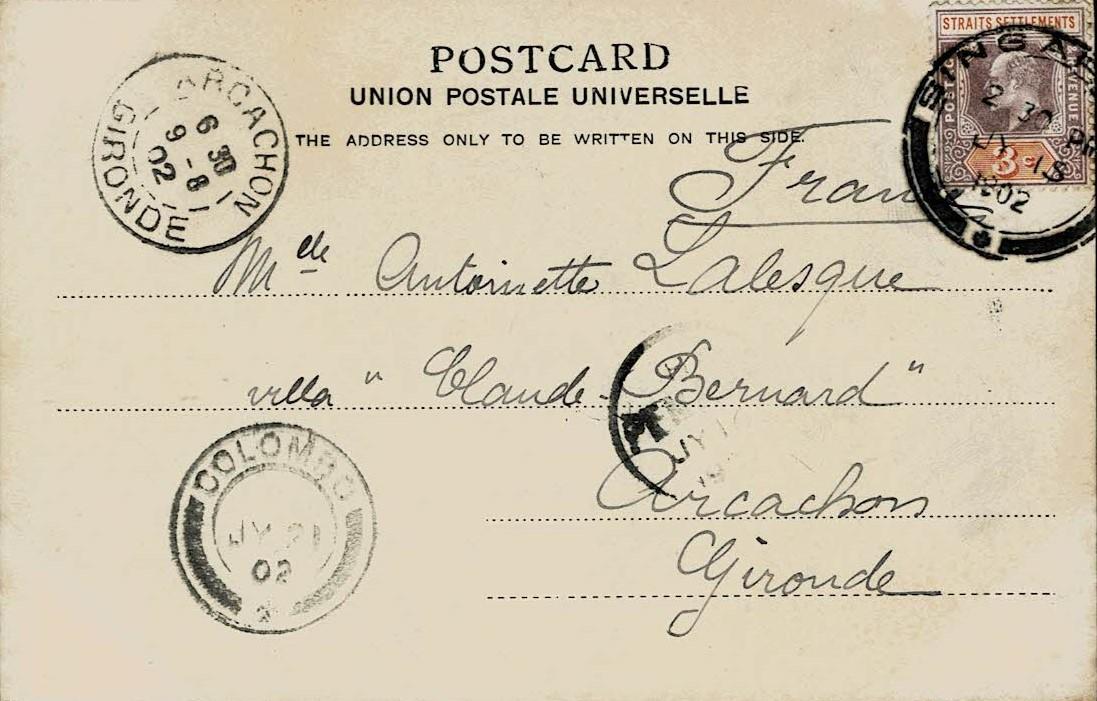 POSTCARD
UNION POSTALE UNIVERSELLE
THE ADDRESS ONLY TO BE WRITTEN ON THIS SIDE.
STRAITS SETTLEMENTS
3c
2 30 PM
JY 18
1902
ARCACHON
6 30
9 - 8
02
GIRONDE
Melle Antoinette Lalesque
villa "Claude Bernard"
Arcachon
Gironde
COLOMBO
JY 21
02